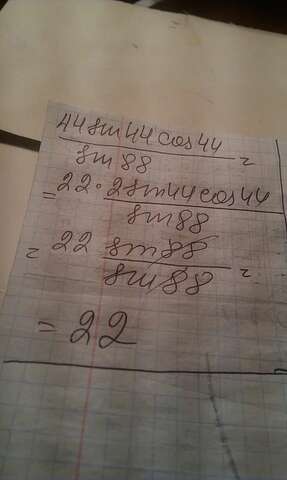 44 sin 44 cos 44
sin 88 =
= 22 · 2 sin 44 cos 44
sin 88
= 22 sin 88
sin 88 =
= 22